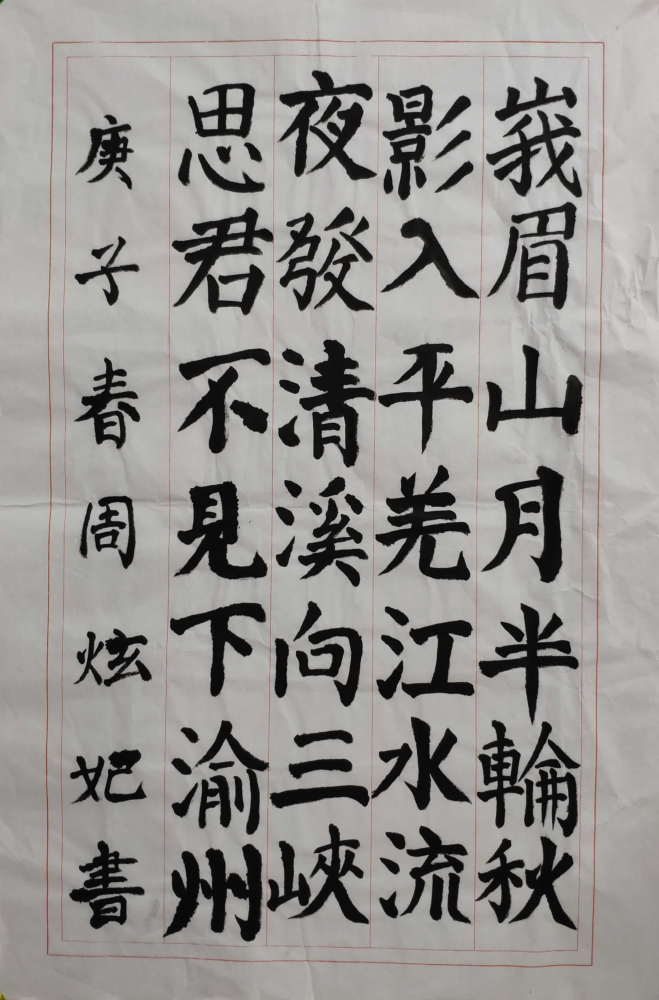 峩眉山月半輪秋
影入平羗江水流
夜發清溪向三峽
思君不見下渝州
庚子春周炫妃書